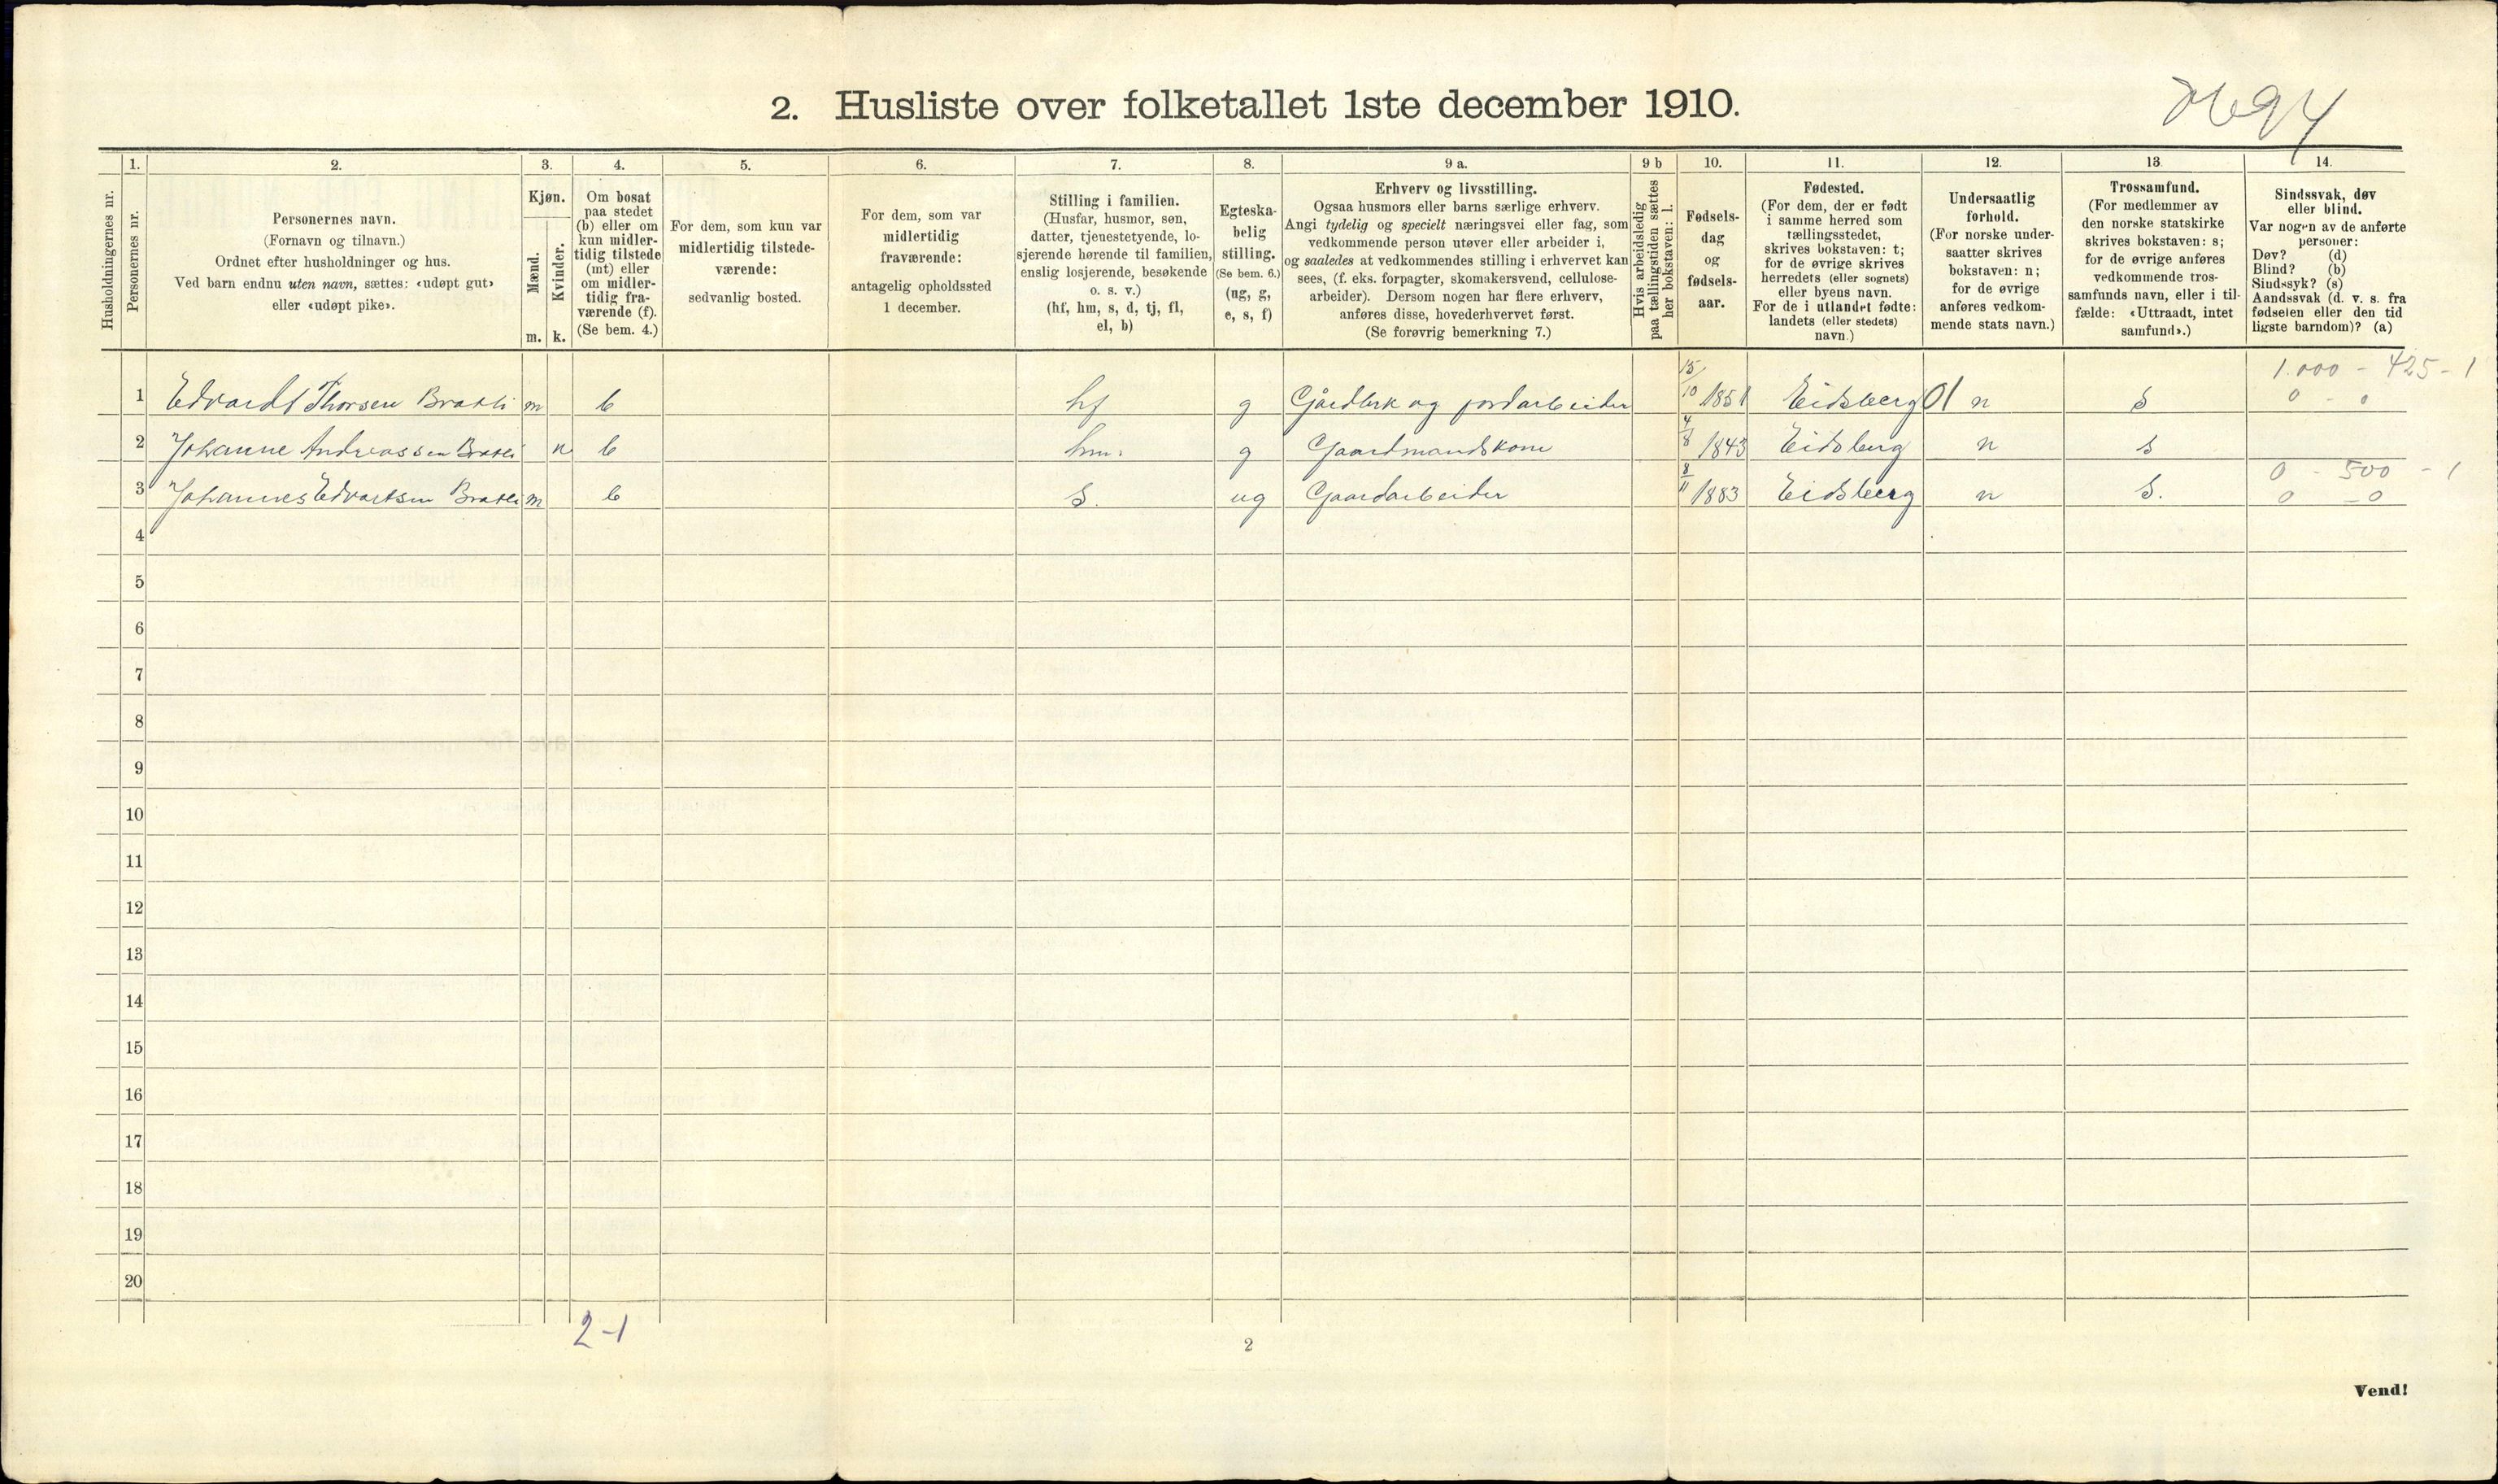 2. Husliste over folketallet 1ste december 1910.
Husholdningernes nr.
1.
Personernes nr.
2.
Personernes navn.
(Fornavn og tilnavn.)
Ordnet efter husholdninger og hus.
Ved barn endnu uten navn, sættes: «udøpt gut»
eller «udøpt pike».
3.
Kjøn.
Mænd.
Kvinder.
m. k.
4.
Om bosat
paa stedet
(b) eller om
kun midler-
tidig tilstede
(mt) eller
om midler-
tidig fra-
værende (f).
(Se bem. 4.)
5.
For dem, som kun var
midlertidig tilstede-
værende:
sedvanlig bosted.
6.
For dem, som var
midlertidig
fraværende:
antagelig opholdssted
1 december.
7.
Stilling i familien.
(Husfar, husmor, søn,
datter, tjenestetyende, lo-
sjerende hørende til familien,
enslig losjerende, besøkende
o. s. v.)
(hf, hm, s, d, tj, fl,
el, b)
8.
Egteska-
belig
stilling.
(Se bem. 6.)
(ug, g,
e, s, f)
9 a.
Erhverv og livsstilling.
Ogsaa husmors eller barns særlige erhverv.
Angi tydelig og specielt næringsvei eller fag, som
vedkommende person utøver eller arbeider i,
og saaledes at vedkommendes stilling i erhvervet kan
sees, (f. eks. forpagter, skomakersvend, cellulose-
arbeider). Dersom nogen har flere erhverv,
anføres disse, hovederhvervet først.
(Se forøvrig bemerkning 7.)
9 b
Hvis arbeidsledig
paa tællingstiden sættes
her bokstaven: l.
10.
Fødsels-
dag
og
fødsels-
aar.
11.
Fødested.
(For dem, der er født
i samme herred som
tællingsstedet,
skrives bokstaven: t;
for de øvrige skrives
herredets (eller sognets)
eller byens navn.
For de i utlandet fødte:
landets (eller stedets)
navn.)
12.
Undersaatlig
forhold.
(For norske under-
saatter skrives
bokstaven: n;
for de øvrige
anføres vedkom-
mende stats navn.)
13
Trossamfund.
(For medlemmer av
den norske statskirke
skrives bokstaven: s;
for de øvrige anføres
vedkommende tros-
samfunds navn, eller i til-
fælde: «Uttraadt, intet
samfund».)
14.
Sindssvak, døv
eller blind.
Var nogen av de anførte
personer:
Døv? (d)
Blind? (b)
Sindssyk? (s)
Aandssvak (d. v. s. fra
fødselen eller den tid
ligste barndom)? (a)
1.000 - 425 - 1
1 Edvardt Thorsen Bratli m b hf g Gårdbrk og jordarbeider 15/10 1851 Eidsberg 01 n s 0 - 0
2 Johanne Andreassen Bratli k b hm. g Gaardmandskone 4/8 1843 Eidsberg n s
0 - 500 - 1
3 Johannes Edvartsen Bratli m b s. ug Gaardarbeider 8/11 1883 Eidsberg n s. 0 - 0
4
5
6
7
8
9
10
11
12
13
14
15
16
17
18
19
20
2-1
2
Vend!